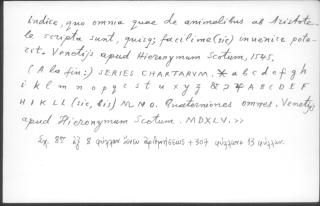 indice, quo omnia quae de animalibus ab Aristote-
le scripta sunt, quisq; facilime (sic) invenire pote-
rit. Venetijs apud Hieronymum Scotum, 1545.
(A la fin:) SERIES CHARTARVM. * a b c d e f g h
i k l m n o p q r s t u x y z & A B C D E F
H I K L L (sic, bis) M N O. Quaterniones omnes. Venetijs
apud Hieronymum Scotum. MDXLV. >>
Σχ. 8ον ἐξ 8 φύλλων ἄνευ ἀριθμήσεως + 307 φύλλων 13 φύλλων.